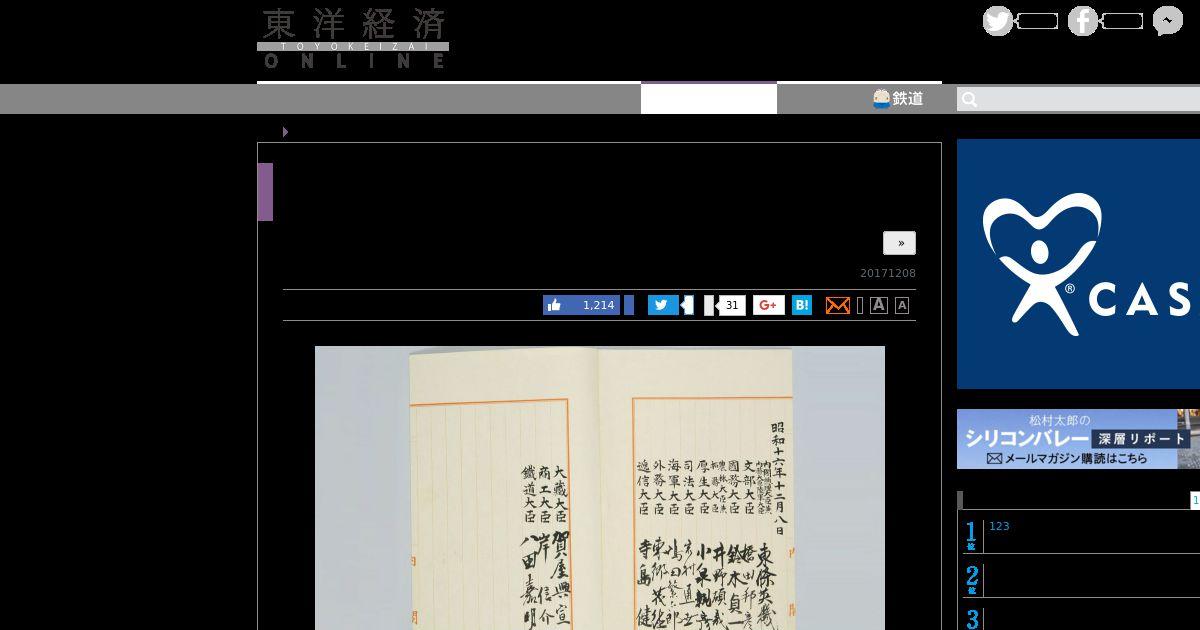 東洋経済
TOYOKEIZAI
ONLINE
鉄道
»
20171208
1,214
31
G+
B!
A
A
昭和十六年十二月八日
文部大臣
國務大臣
厚生大臣
司法大臣
海軍大臣
外務大臣
遞信大臣
大藏大臣
商工大臣
鐵道大臣
東條英機
橋田邦彦
鈴木貞一
井野碩哉
小泉親彦
岩村通世
嶋田繁太郎
東郷茂徳
寺島健
賀屋興宣
岸信介
八田嘉明
® CAS
松村太郎の
シリコンバレー 深層リポート
メールマガジン購読はこちら
1
1位 123
2位
3